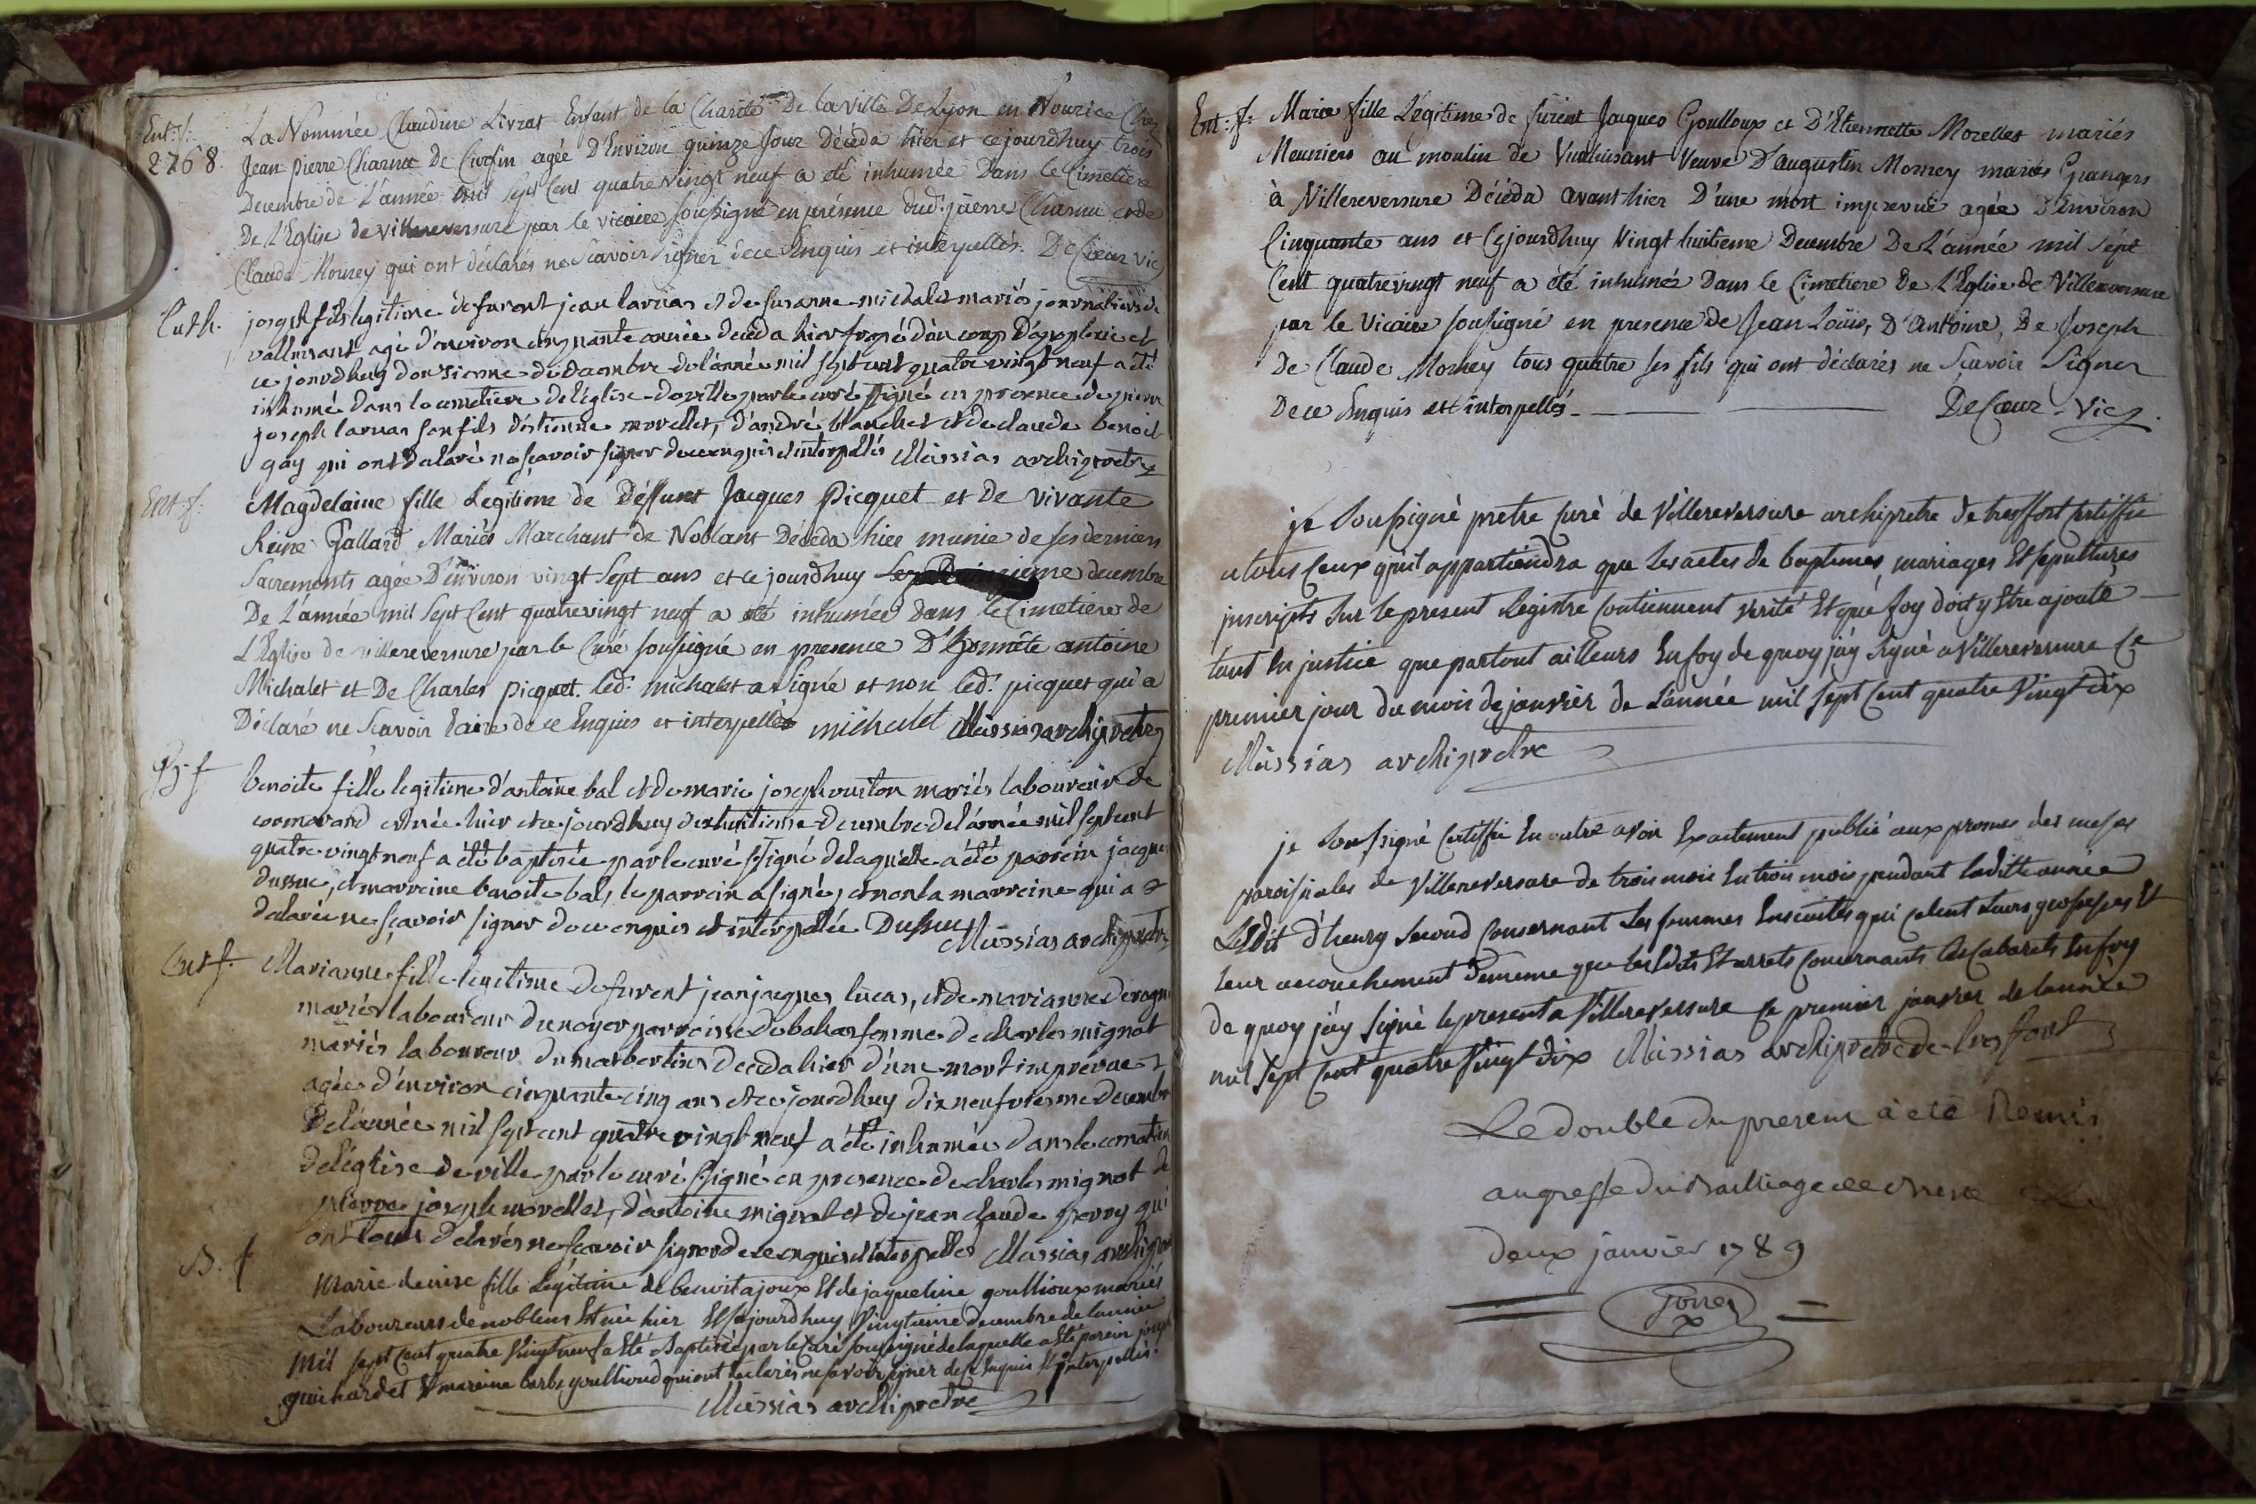 Ent: f:
2768.
La Nommée Claudine Livrat Enfant de la Charité De la ville De Lyon en Nourice Chez
Jean pierre Charnu De Civrfin agée D'Environ quinze Jour Décéda hier et cejourdhuy trois
Decembre de L'année mil sept Cent quatre vingt neuf a été inhumée Dans le Cimetiere
De L'Eglise de villereversure par le vicaire soussigné en présence dud: pierre Charnu et de
Claude Morney qui ont déclarés ne Scavoir Signer dece Enquis et interpellés. DeCoeur vic
Ent h.
joseph fils legitime de furent jean larnas et de susanne michalet mariés journaliers de
vallensant agé d'environ cinquante année deceda hier frapé d'un coup d'apoplexie et
ce jourdhuy donzieme de decembre de l'année mil sept cent quatre vingt neuf a été
inhumé dans le cemetiere de l'église de ville par le curé ssigné en presence de pierre
joseph larnas son fils d'étienne morellet, d'andré blanchet et de claude benoit
gay qui ont declaré ne sçavoir signer dece enquis et interpellés Massias archipretre
Ent: f:
Magdelaine fille Legitime de Deffunt Jacques Picquet et De vivante
Reine Gallard Mariés Marchant de Noblant Décéda hier munie de ses derniers
Sacrements agée D'environ vingt Sept ans et ce jourdhuy decembre
De L'année mil Sept Cent quatrevingt neuf a été inhumée dans le Cimetiere de
L'Eglise de villereversure par le Curé soussigné en presence D'Honnête antoine
Michalet et De Charles picquet. led: michalet a Signé et non led: picquet qui a
Déclaré ne Scavoir faire de ce Enquis et interpellés michalet Massias archipretre
B. f
benoite fille legitime d'antoine bal et de marie joseph mariés laboureur de
cormorand et née hier et ce jourdhuy dixhuitieme decembre de l'année mil sept cent
quatre vingt neuf a été baptisée par le curé ssigné de laquelle a été parrein jacque
dussuc, et marreine benoite bal, le parrein a signé, et non la marreine qui a
declarée ne sçavoir signer de ce enquis et interpellée Dussuc Massias archipretre
Ent f.
Marianne fille legitime de furent jean jacques lucas, et de marianne
mariés laboureur du noyer parroisse de bohas femme de charles mignot
mariés laboureur du marbertin deceda hier d'une mort imprevue
agée d'environ cinquante cinq ans et ce jourdhuy dix neufviesme decembre
de l'année mil sept cent quatre vingt neuf a été inhumée dans le cemetiere
de l'église de ville par le curé ssigné en presence de charles mignot de
pierre joseph morellet, d'antoine mignot et de jean claude perry qui
ont tous declarés ne sçavoir signer de ce enquis et interpellés Massias archipre
B. f
Marie denise fille Legitime de benoit ajoux Et de jaqueline goullioux mariés
Laboureurs de noblens Et née hier Et cejourdhuy Vingtieme decembre de l'année
Mil sept Cent quatre Vingt neuf a Eté Baptisée par le Curé soussigné de laquelle a Eté parein joseph
guichardet Et mareine barbe goullioud qui ont declarés ne savoir signer de ce Enquis Et interpellés.
Massias archipretre
Ent: f:
Marie fille Légitime de furent Jacques Goulloux et D'Etiennette Morellet mariés
Meuniers au moulin de Vuaisant Veuve D'augustin Morney mariés Grangers
à Villereversure Décéda avant-hier D'une mort imprevue agée D'Environ
Cinquante ans et Cejourdhuy Vingt huitieme Decembre De L'année mil Sept
Cent quatrevingt neuf a été inhumée Dans le Cimetiere De L'Eglise de Villereversure
par le Vicaire soussigné en presence de Jean Loüis, D'Antoine, De Joseph
De Claude Morney tous quatre ses fils qui ont déclarés ne Sçavoir Signer
De ce Enquis et interpellés. DeCoeur - Vic.
je soussigné pretre Curé de Villereversure archipretre de tresffort Certiffie
a tous Ceux quil appartiendra que Les actes de baptemes, mariages Et sepultures
inscripts sur le present Registre Contiennent verité Et que foy doit y Etre ajoute
tant En justice que partout ailleurs En foy de quoy j'ay signé a Villereversure Ce
premier jour du mois de janvier de L'année mil sept Cent quatre Vingt dix
Massias archipretre
je soussigné Certiffie En outre avoir Exactement publié aux prones des messes
paroissiales de Villereversure de trois mois En trois mois pendant laditte année
L'Edit d'henry second Consernant Les femmes Enceintes qui celent Leurs grossesses Et
leur accouchement dememe que les Edits Et arrets Concernants les Cabarets En foy
de quoy j'ay signé le present a Villereversure Ce premier janvier de l'année
mil sept Cent quatre Vingt dix Massias archipretre de tresfort
Le double du present à été Remis
au greffe du Bailliage de Bresse Le
deux janvier 1789